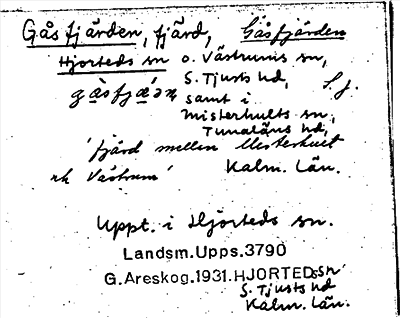 Gåsfjärden, fjärd, Gåsfjärden
Hjorteds sn o. Västrums sn,
S. Tjusts hd, S. f.
gåsfjæ̀ən samt i
Misterhults sn,
Tunaläns hd,
'fjärd mellan Misterhult
och Västrum' Kalm. Län.
Uppt. i Hjorteds sn.
Landsm.Upps.3790
G.Areskog.1931.HJORTEDS SN
S. Tjusts hd
Kalm. Län.